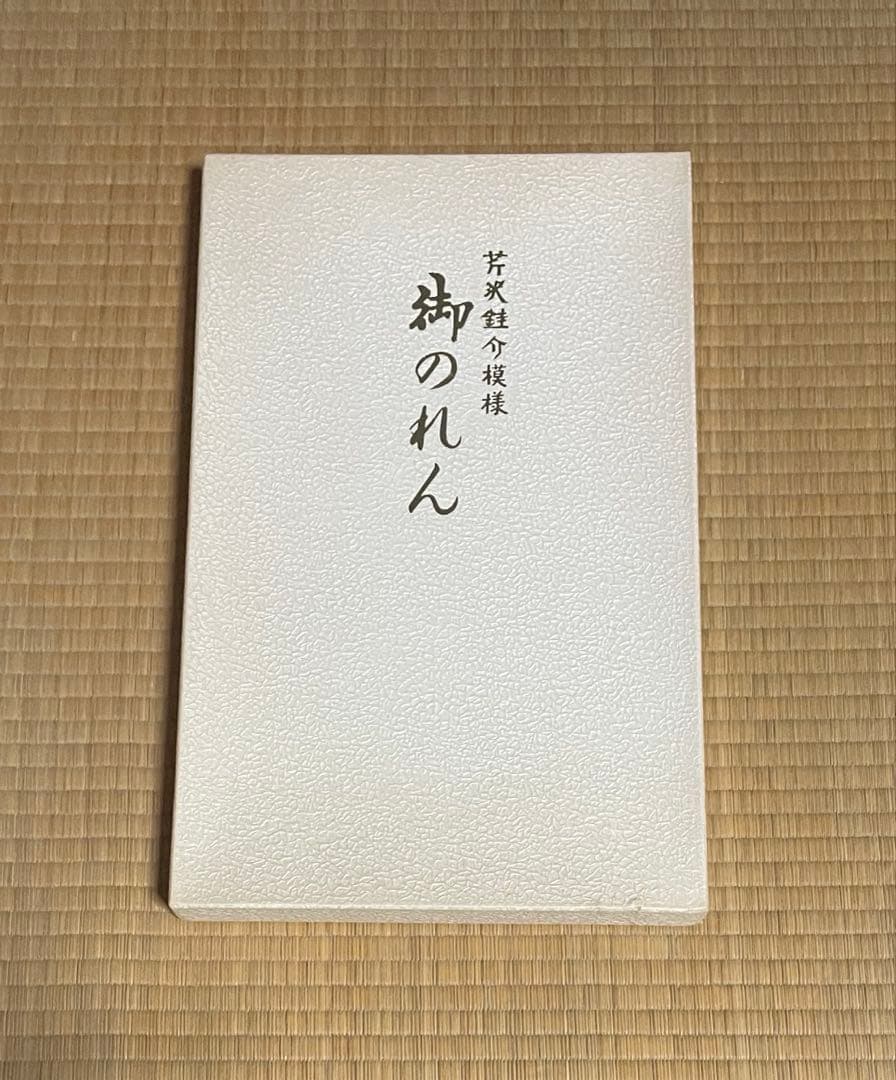 芹沢銈介模様
御のれん